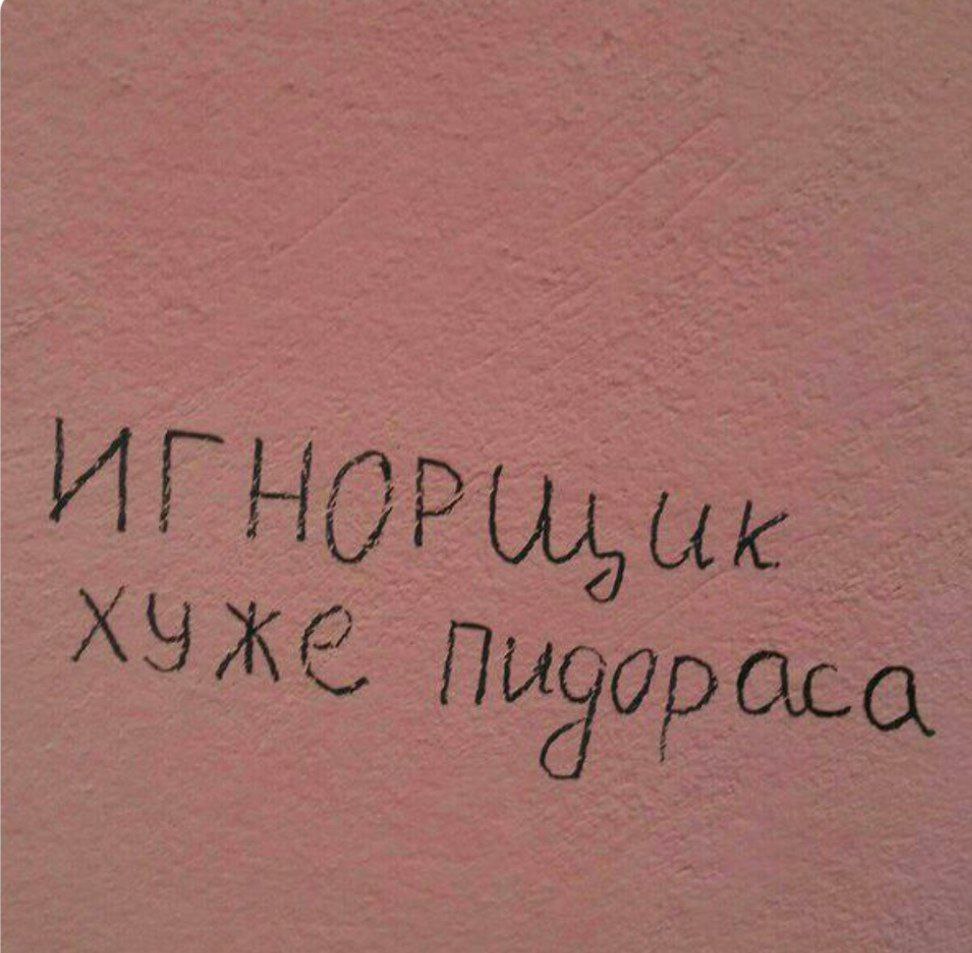 ИГНОРЩИК
хуже пидораса